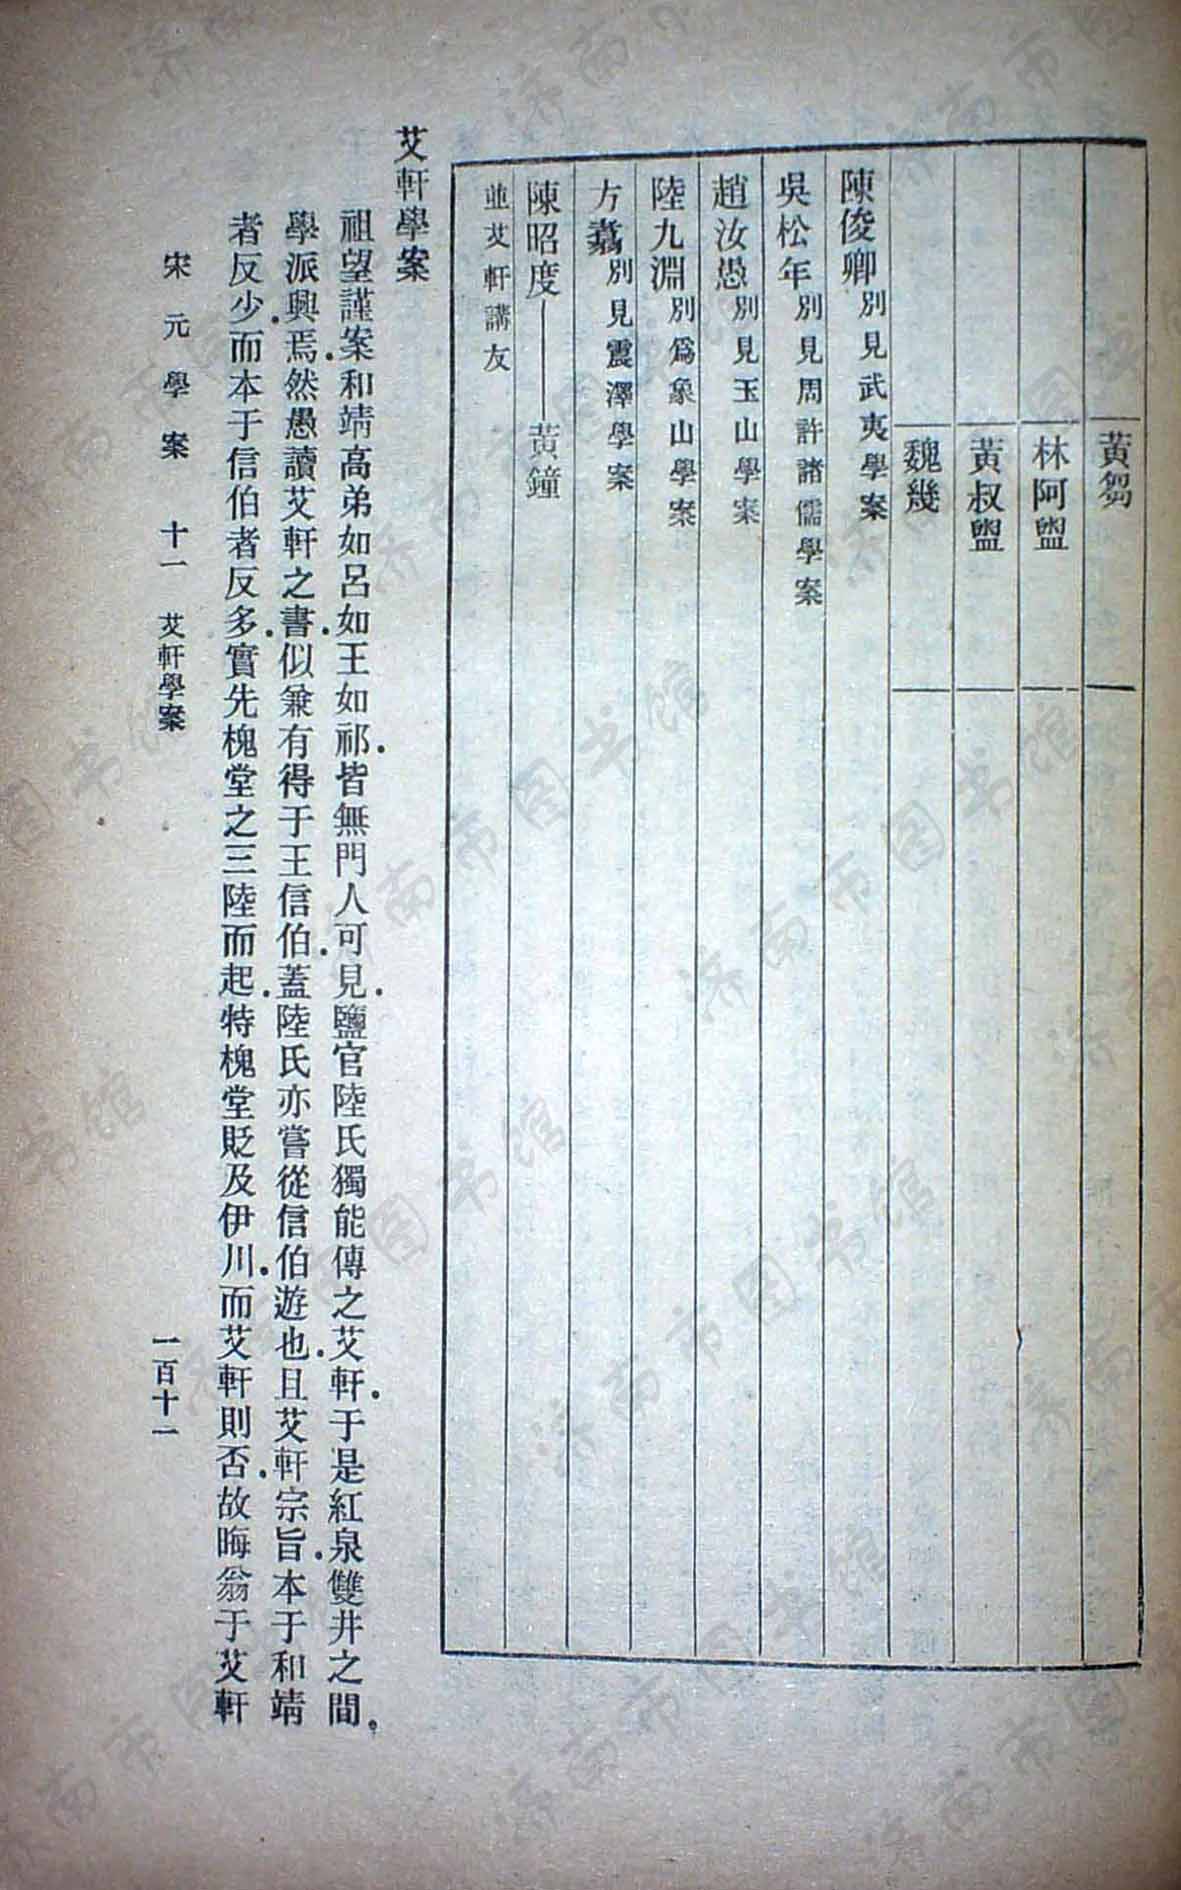 黃芻
林阿盥
黃叔盥
魏幾
陳俊卿別見武夷學案
吳松年別見周許諸儒學案
趙汝愚別見玉山學案
陸九淵別為象山學案
方翥別見震澤學案
陳昭度——黃鐘
並艾軒講友
艾軒學案
祖望謹案和靖高弟如呂如王如祁皆無門人可見鹽官陸氏獨能傳之艾軒于是紅泉雙井之間
學派興焉然愚讀艾軒之書似兼有得于王信伯蓋陸氏亦嘗從信伯遊也且艾軒宗旨本于和靖
者反少而本于信伯者反多實先槐堂之三陸而起特槐堂貶及伊川而艾軒則否故晦翁于艾軒
宋元學案 十一 艾軒學案 一百十一
济南市图书馆